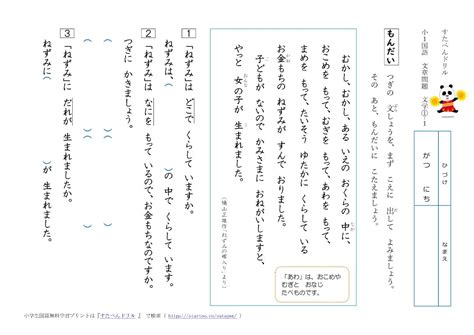 すたぺんドリル
小１国語 文章問題 文学①-1
ひづけ
がつ にち
なまえ
もんだい
つぎの 文しょうを、まず こえに 出して よみましょう。
その あと、もんだいに こたえましょう。
むかし、むかし、ある いえの おくらの 中に、
お米を もって、むぎを もって、あわを もって、
まめを もって、たいそう ゆたかに くらして いる、
お金もちの ねずみが すんで おりました。
子どもが ないので かみさまに おねがいしますと、
やっと 女の子が 生まれました。
「あわ」は、おこめや
むぎと おなじ
たべものです。
1
「ねずみ」は どこで くらして いますか。
ねずみは、（ ）の 中で くらして います。
2
「ねずみ」は なにを もって いるので、お金もちなのですか。
つぎに かきましょう。
（ ）（ ）
（ ）（ ）
3
「ねずみ」に だれが 生まれましたか。
ねずみに（ ）が 生まれました。
小学生国語無料学習プリントは『すたぺんドリル 』 で検索